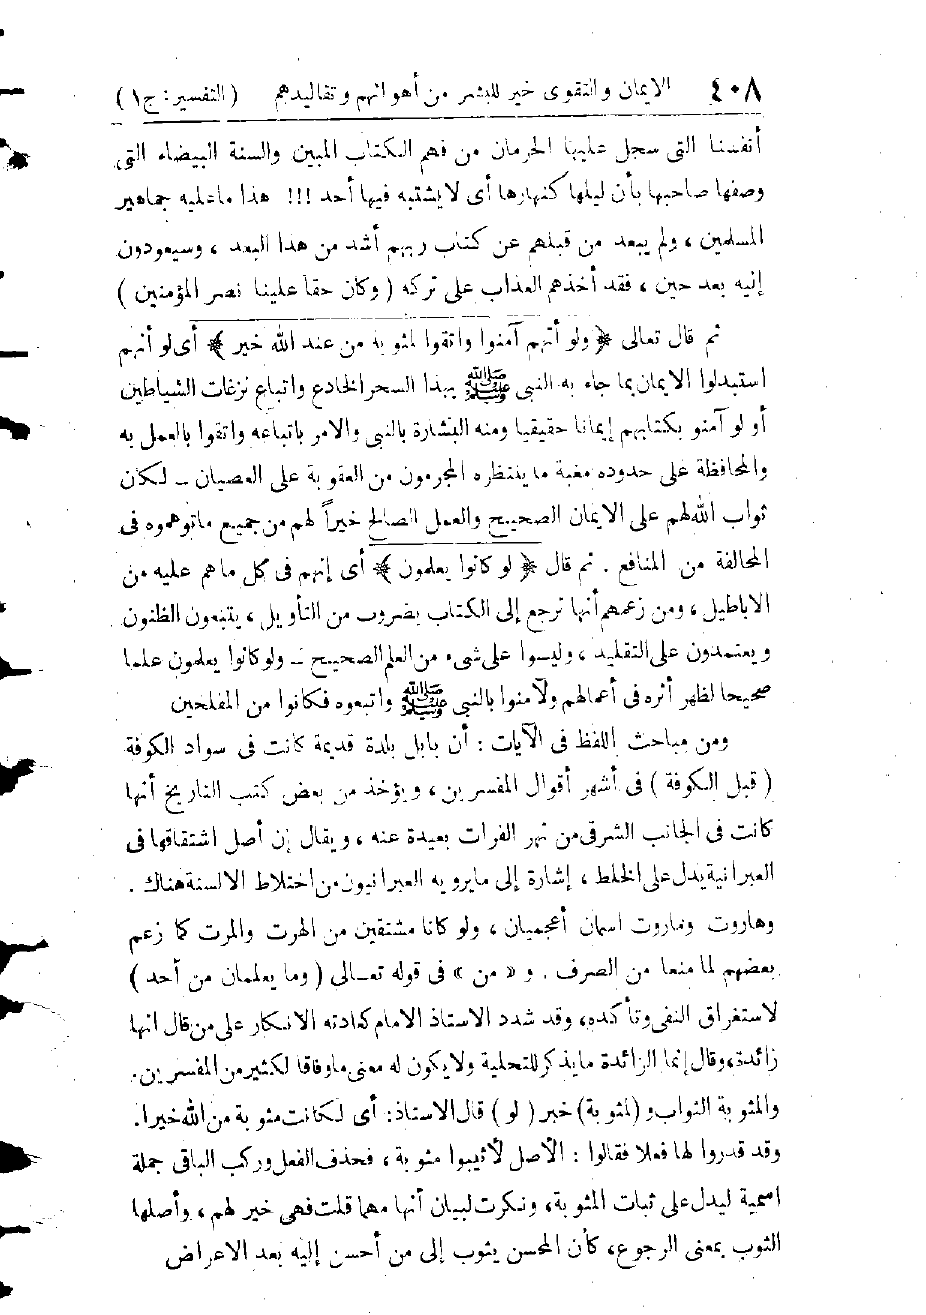 ٤٠٨ الايمان والتقوى خير للبشر من أهوائهم وتقاليدهم (التفسير: ج ١)
أنفسنا التى سجل عليها الحرمان من فهم الكتاب المبين والسنة البيضاء التى
وصفها صاحبها بأن ليلها كنهارها أى لا يشتبه فيها أحد !!! هذا ما عليه جماهير
المسلمين ، ولم يبعد من قبلهم عن كتاب ربهم أشد من هذا البعد ، وسيعودون
إليه بعد حين ، فقد أخذهم العذاب على تركه ( وكان حقا علينا نصر المؤمنين )
ثم قال تعالى ﴿ ولو أنهم آمنوا واتقوا لمثوبة من عند الله خير ﴾ أى لو أنهم
استبدلوا الايمان بما جاء به النبى ﷺ بهذا السحر الخادع واتباع نزغات الشياطين
أو لو آمنو بكتابهم إيمانا حقيقيا ومنه البشارة بالنبى والامر باتباعه واتقوا بالعمل به
والمحافظة على حدوده مغبة ما ينتظره المجرمون من العقوبة على العصيان ــ لكان
ثواب الله لهم على الايمان الصحيح والعمل الصالح خيراً لهم من جميع ما توهموه فى
المخالفة من المنافع . ثم قال ﴿ لو كانوا يعلمون ﴾ أى إنهم فى كل ما هم عليه من
الاباطيل ، ومن زعمهم أنها ترجع إلى الكتاب بضروب من التأويل ، يتبعون الظنون
ويعتمدون على التقليد ، وليسوا على شىء من العلم الصحيح ــ ولو كانوا يعلمون علما
صحيحا لظهر أثره فى أعمالهم ولآمنوا بالنبى ﷺ واتبعوه فكانوا من المفلحين
ومن مباحث اللفظ فى الآيات : أن بابل بلدة قديمة كانت فى سواد الكوفة
( قبل الكوفة ) فى أشهر أقوال المفسرين ، ويؤخذ من بعض كتب التاريخ أنها
كانت فى الجانب الشرقى من نهر الفرات بعيدة عنه ، ويقال إن أصل اشتقاقها فى
العبرانية يدل على الخلط ، إشارة إلى ما يرويه العبرانيون من اختلاط الالسنة هناك .
وهاروت وماروت اسمان أعجميان ، ولو كانا مشتقين من الهرت والمرت كما زعم
بعضهم لما منعا من الصرف . و « من » فى قوله تعـالى ( وما يعلمان من أحد )
لاستغراق النفى وتأكده، وقد شدد الاستاذ الامام كعادته الانكار على من قال انها
زائدة، وقال إنما الزائدة ما يذكر للتحلية ولا يكون له معنى ما وفاقا لكثير من المفسرين.
والمثوبة الثواب و(لمثوبة) خبر ( لو ) قال الاستاذ: أى لكانت مثوبة من الله خيرا.
وقد قدروا لها فعلا فقالوا : الأصل لأثيبوا مثوبة ، فحذف الفعل وركب الباقى جملة
اسمية ليدل على ثبات المثوبة، ونكرت لبيان أنها مهما قلت فهى خير لهم ، وأصلها
الثوب بمعنى الرجوع، كأن المحسن يثوب إلى من أحسن إليه بعد الاعراض